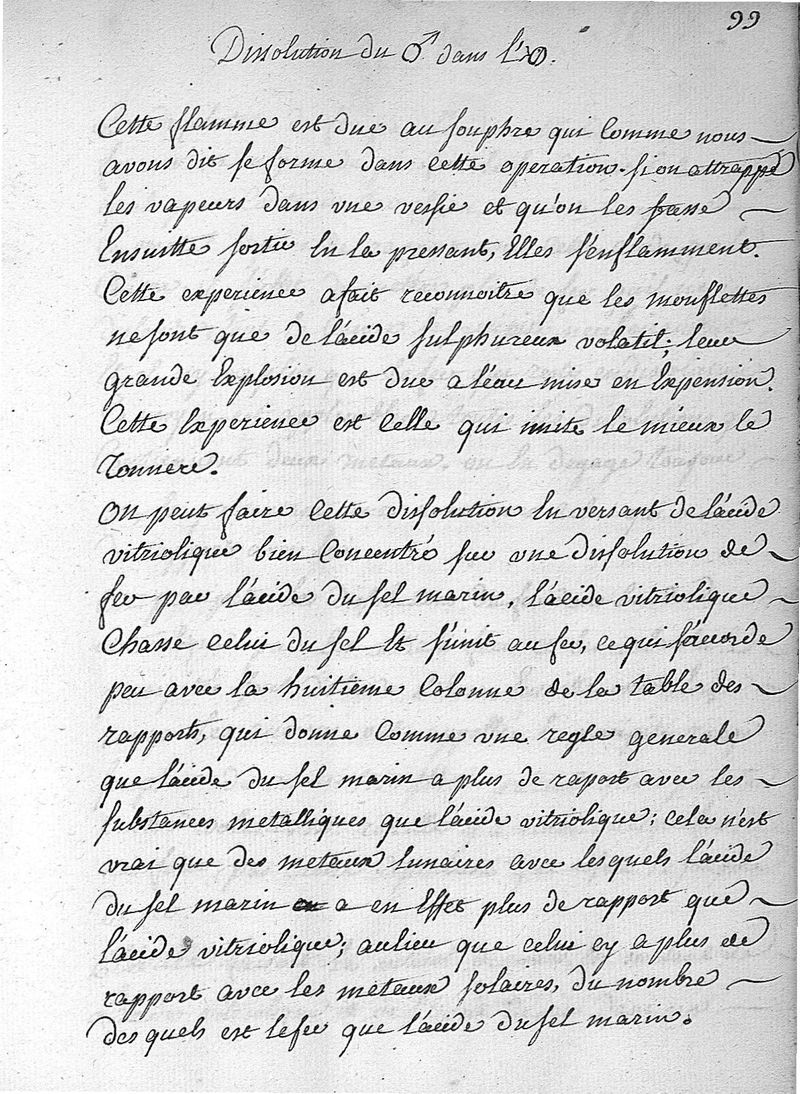 99
Dissolution du ♂ dans l'
Cette flamme est due au souphre qui Comme nous
avons dit se forme dans cette operation. si on attrappe
les vapeurs dans une vessie et qu'on les fasse
Ensuitte sortir En la pressant, Elles s'enflamment.
Cette experience a fait reconnoitre que les mouflettes
ne sont que de l'acide sulphureux volatil; leur
grande Explosion est due a l'eau mise en Expension.
Cette Experience est Celle qui imite le mieux le
Tonnere.
On peut faire Cette dissolution En versant de l'acide
vitriolique bien Concentré sur une dissolution de
fer par l'acide du sel marin, l'acide vitriolique
Chasse Celui du sel Et s'unit au fer, ce qui s'accorde
peu avec la huitieme Colonne de la table des
rapports, qui donne Comme une regle generale
que l'acide du sel marin a plus de raport avec les
substances metalliques que l'acide vitriolique; cela n'est
vrai que des metaux lunaires avec lesquels l'acide
du sel marin a en Effet plus de rapport que
l'acide vitriolique; au lieu que celui cy a plus de
rapport avec les metaux solaires, du nombre
des quels est le fer que l'acide du sel marin.